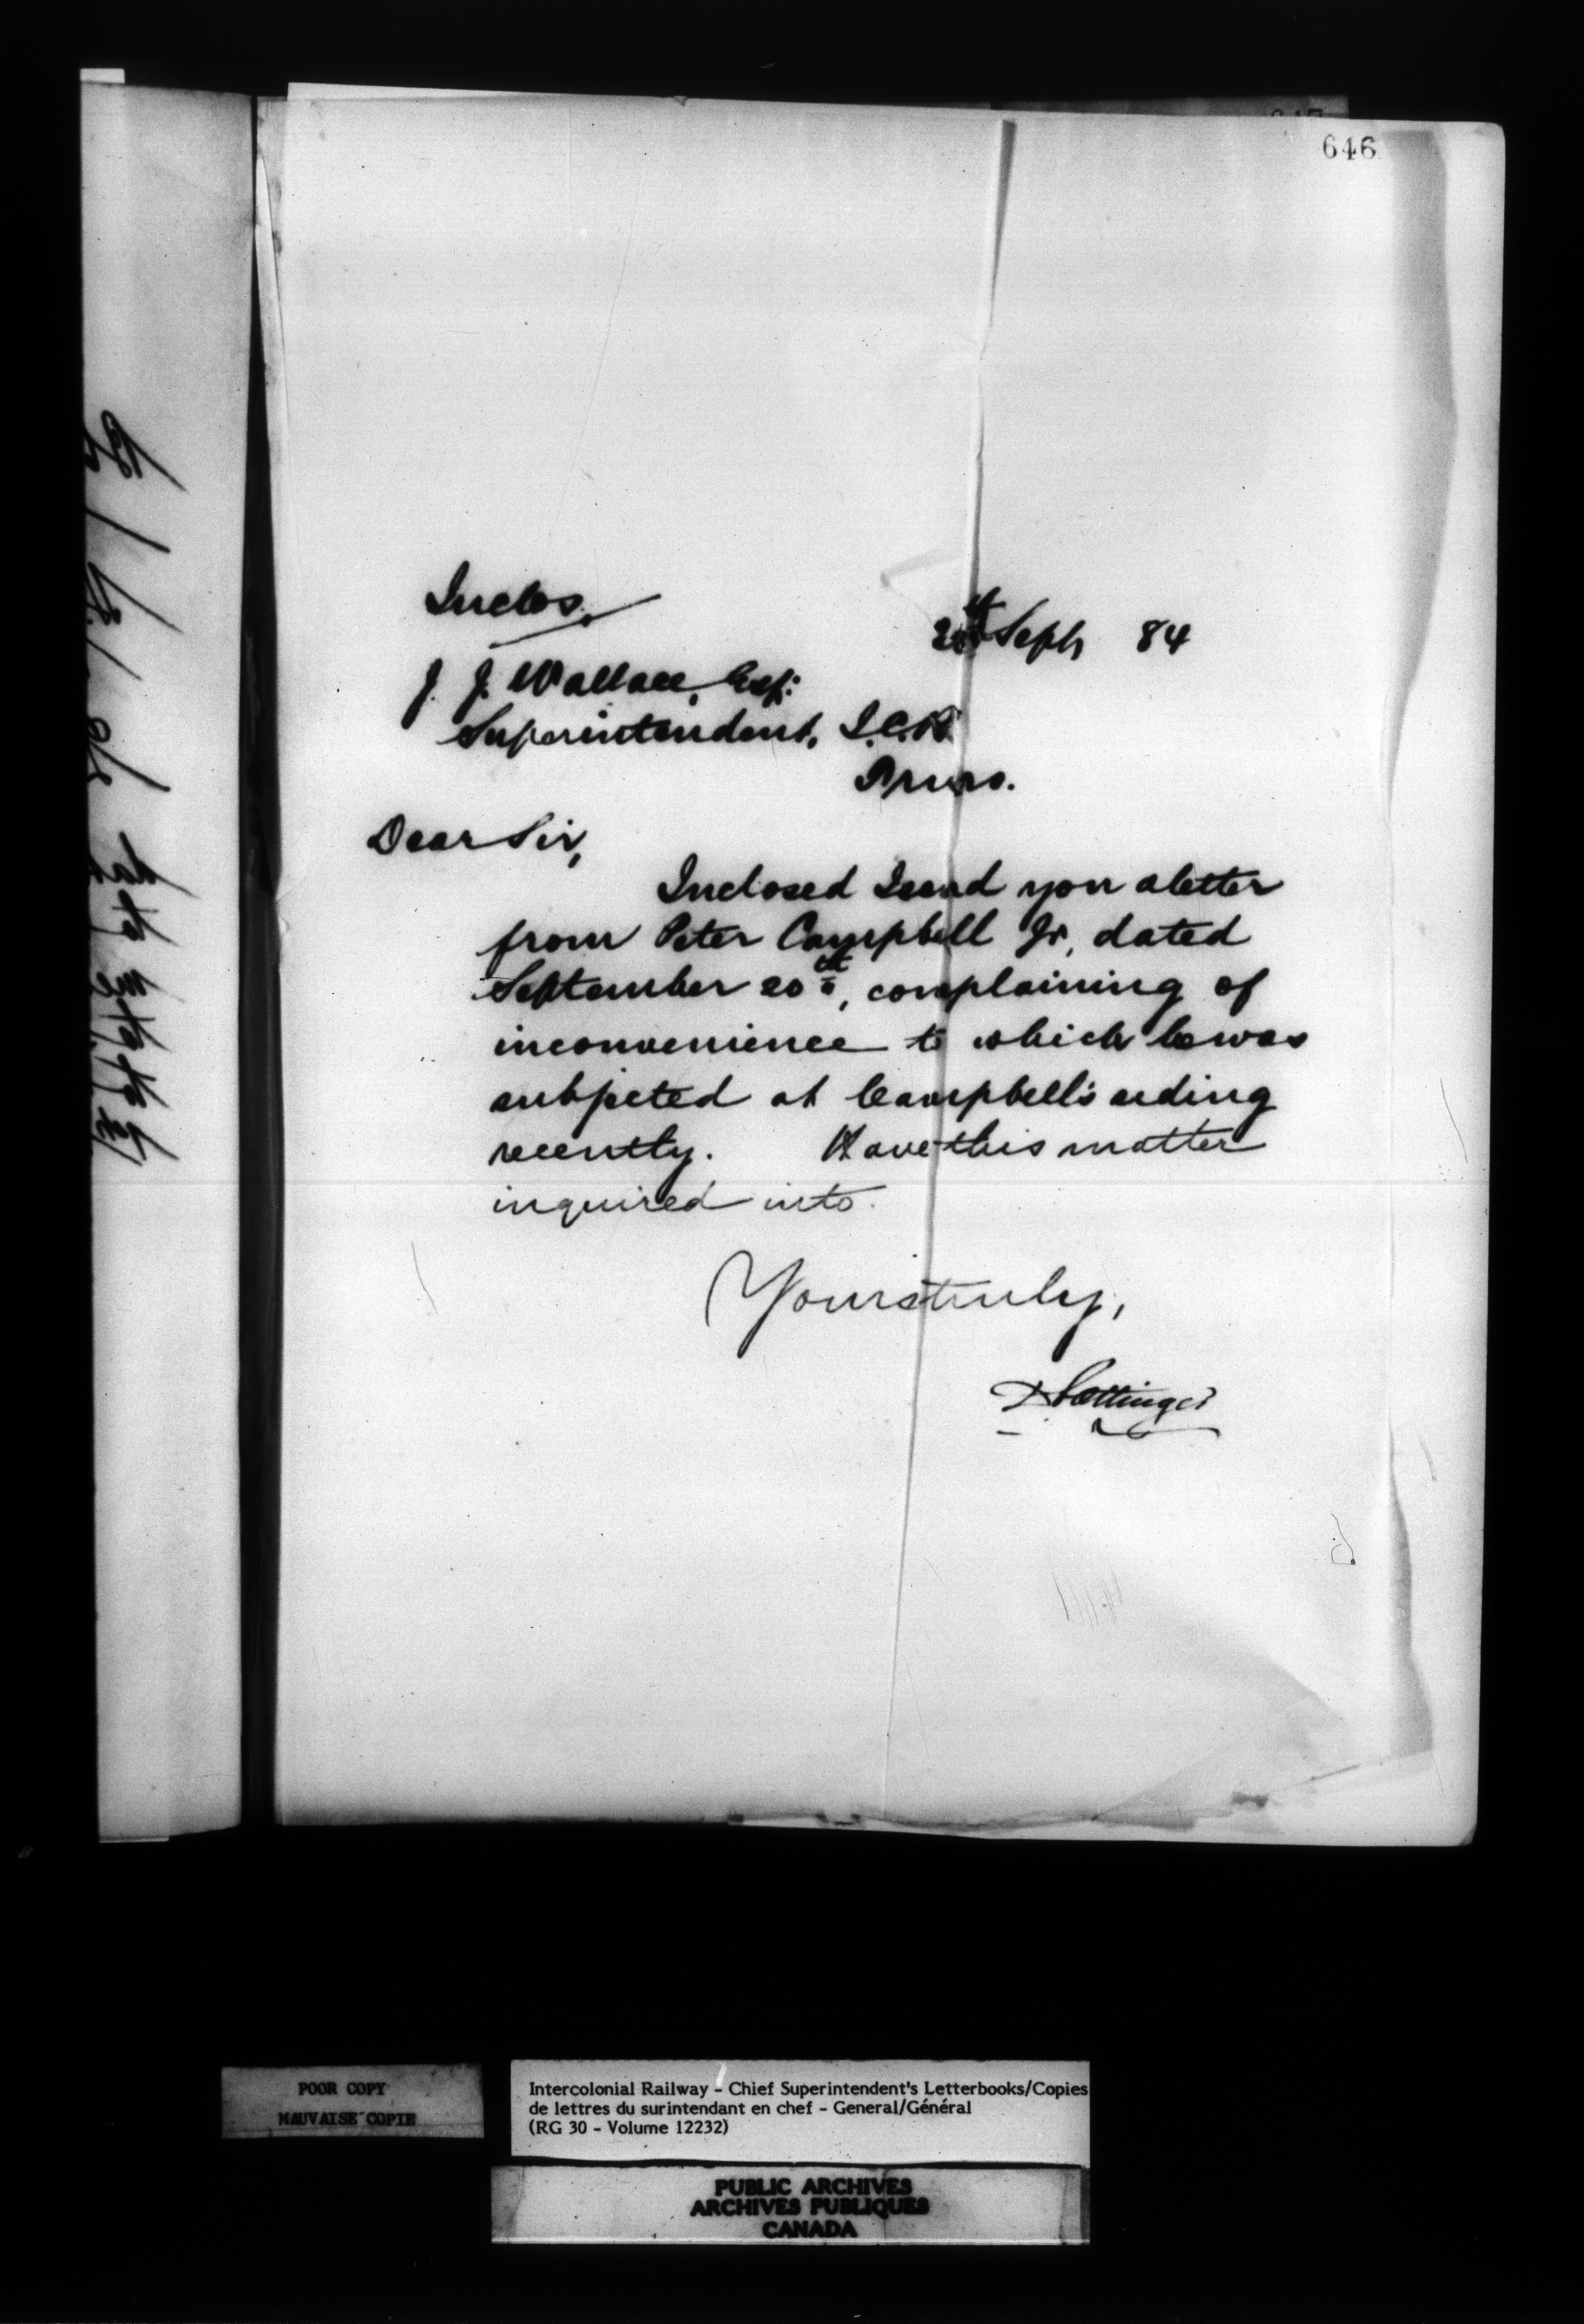 646
Inclos.
Sept 84
J. J. Wallace, Esq:
Superintendent, I.C.R.
Truro.
Dear Sir,
Inclosed I send you a letter
from Peter Campbell Jr, dated
September 20th, complaining of
inconvenience to which he was
subjected at Campbell's siding
recently. Have this matter
inquired into.
Yours truly,
D Pottinger
POOR COPY
MAUVAISE COPIE
Intercolonial Railway - Chief Superintendent's Letterbooks/Copies
de lettres du surintendant en chef - General/Général
(RG 30 - Volume 12232)
PUBLIC ARCHIVES
ARCHIVES PUBLIQUES
CANADA